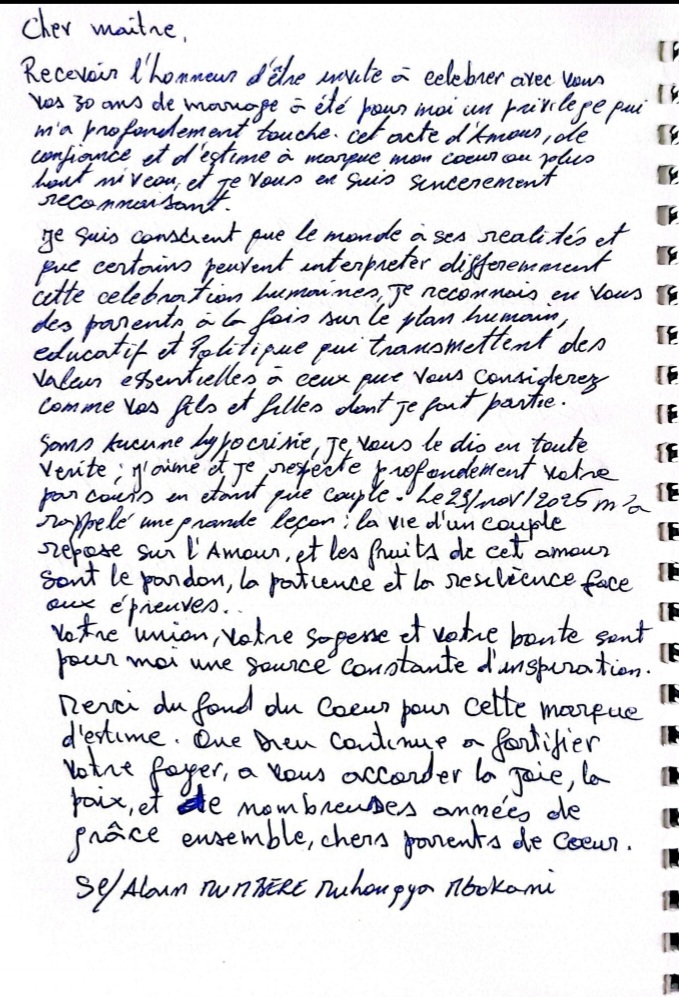 Cher maître,
Recevoir l'honneur d'être invite à celebrer avec vous
vos 30 ans de mariage à été pour moi un privilege qui
m'a profondement touche. cet acte d'Amour, de
confiance et d'estime à marque mon coeur au plus
haut niveau, et je vous en suis sincerement
reconnaissant.
je suis conscient que le monde à ses realités et
que certains peuvent interpreter differemment
cette celebration humaines, je reconnais en vous
des parents à la fois sur le plan humain,
educatif et Politique qui transmettent des
valeur essentielles à ceux que vous considerez
comme vos fils et filles dont je fait partie.
Sans Aucune hypocrisie, je vous le dis en toute
verite ; j'aime et je respecte profondement votre
parcours en etant que couple. Le 29/nov/2025 m'a
rappelé une grande leçon : la vie d'un couple
repose sur l'Amour, et les fruits de cet amour
sont le pardon, la patience et la resilience face
aux épreuves..
Votre union, votre sagesse et votre bonte sont
pour moi une source constante d'inspiration.
Merci du fond du Coeur pour cette marque
d'estime. Que Dieu continue a fortifier
votre foyer, a vous accorder la joie, la
paix, et de nombreuses années de
grâce ensemble, chers parents de Coeur.
Sé/ Alain MUMBERE Muhongya Mbokani